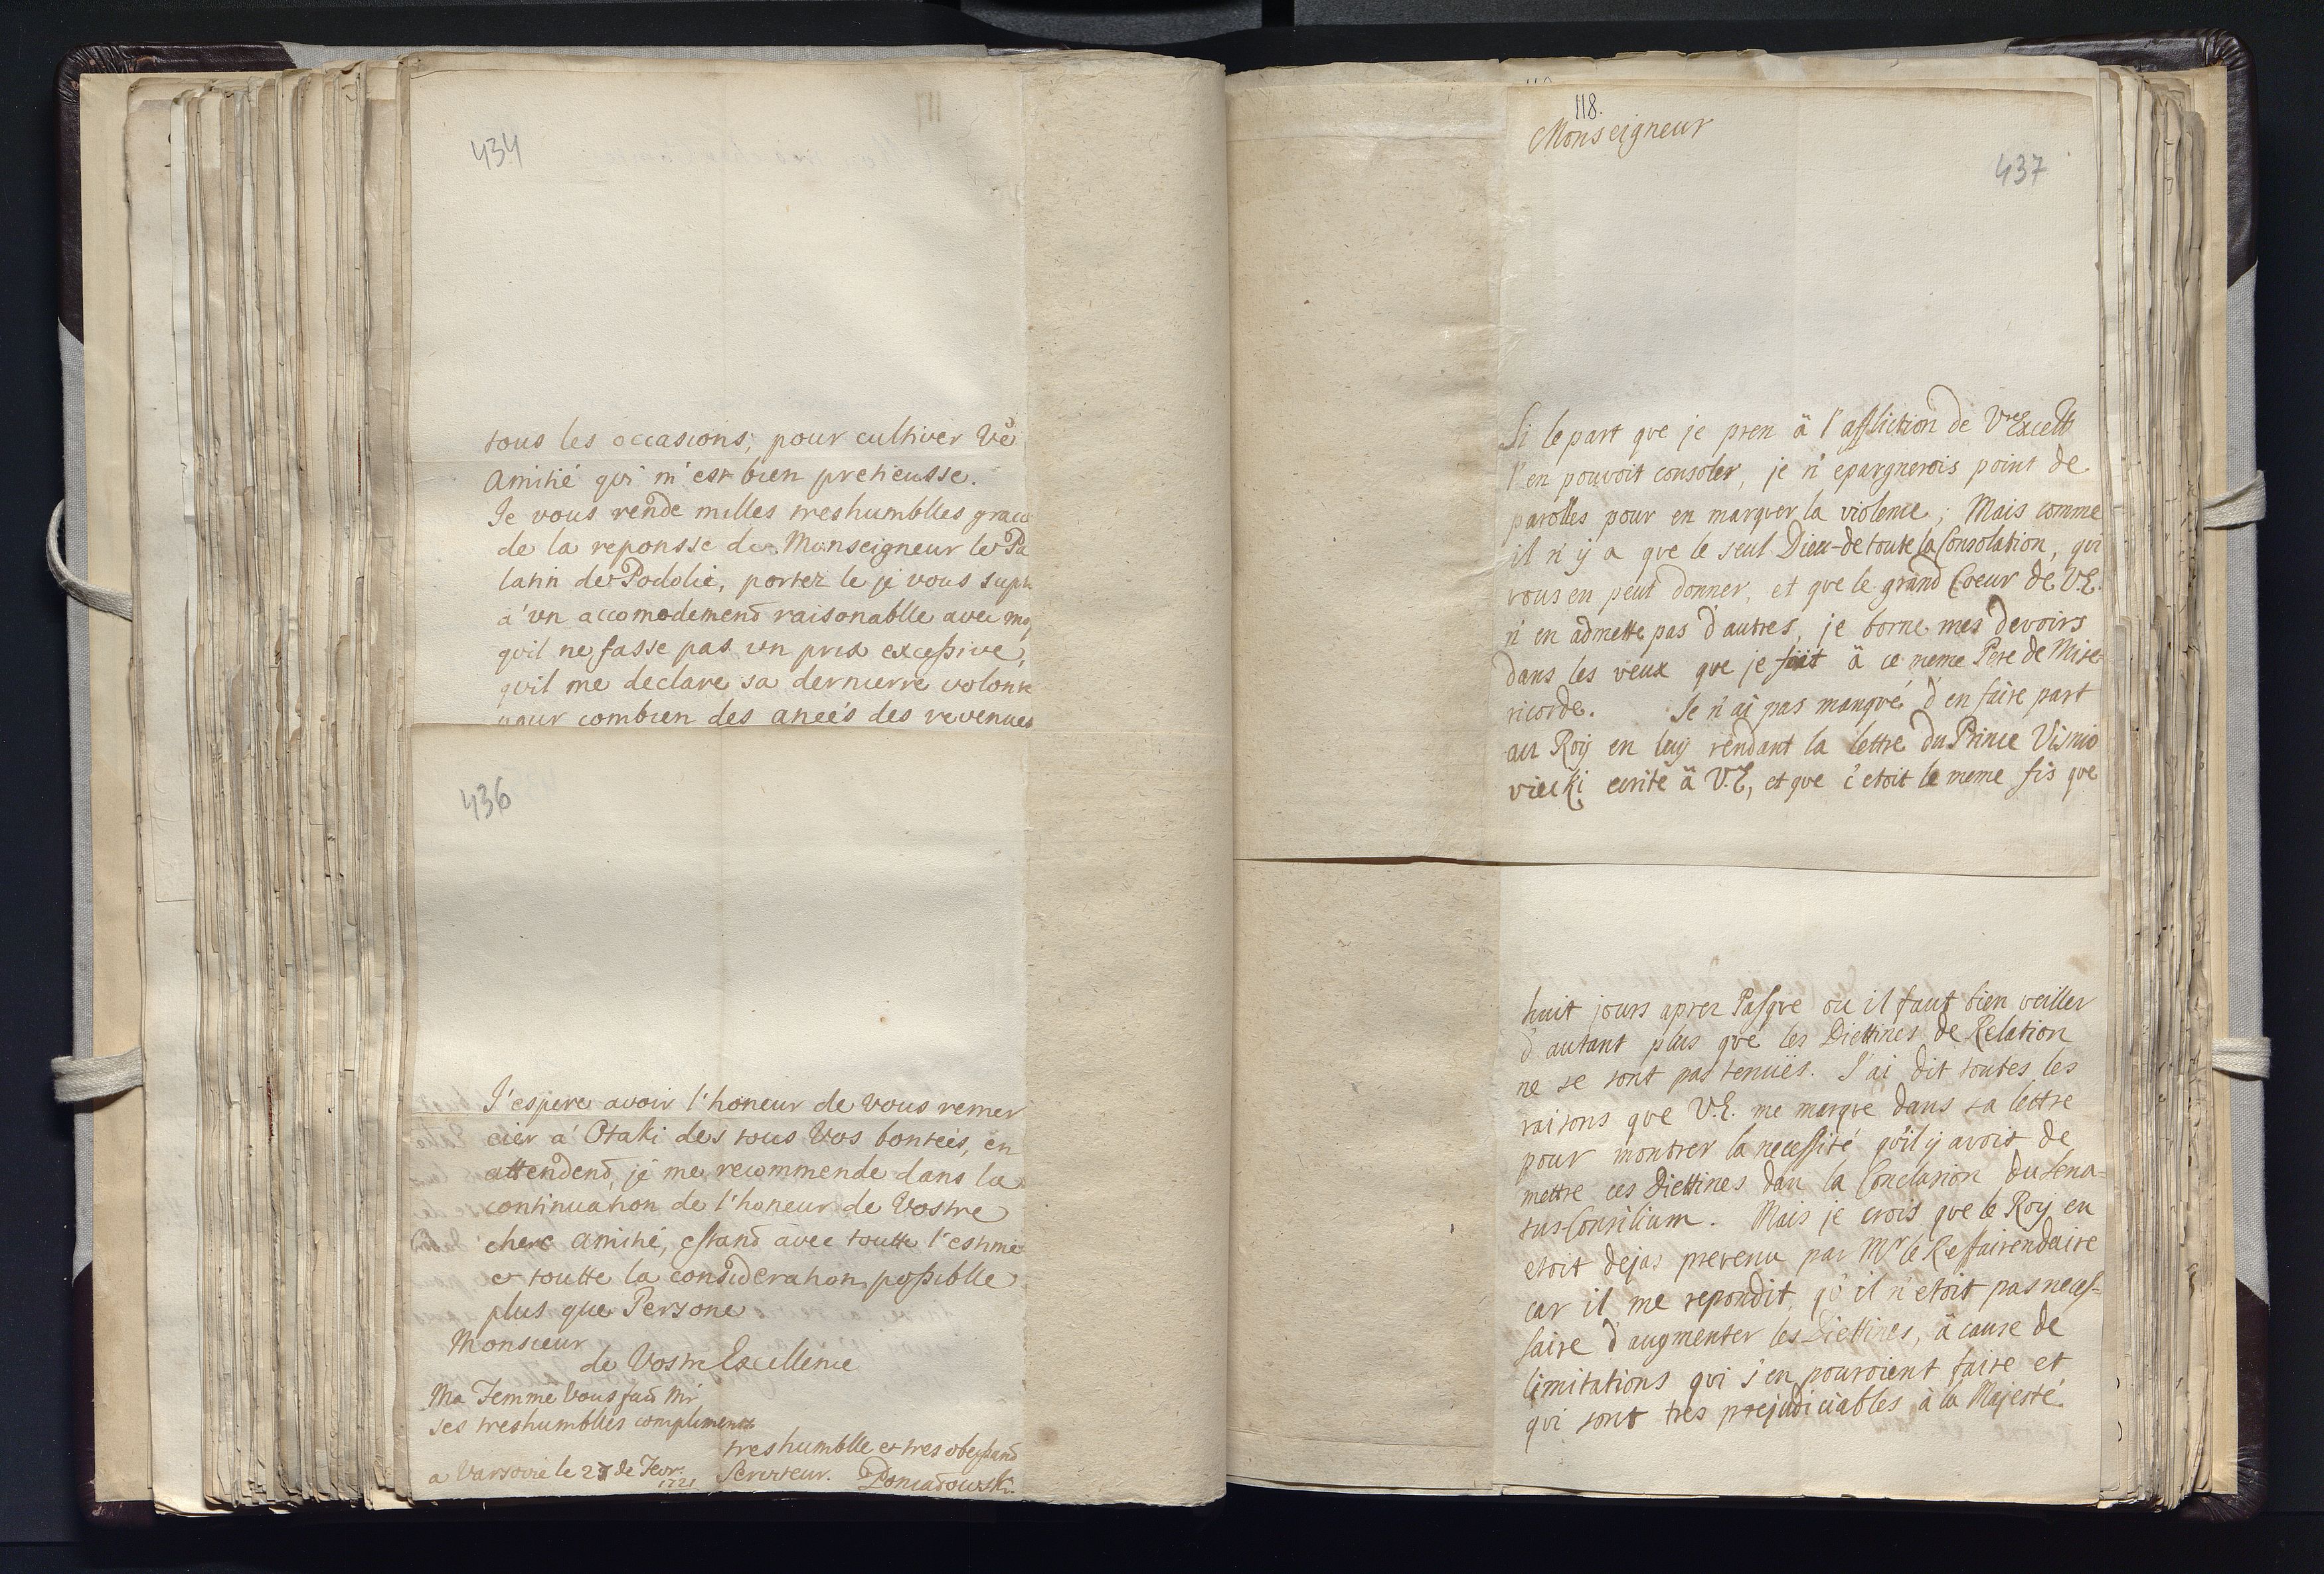 434
tous les occasions; pour cultiver Vè
Amitié qui m'est bien pretieusse.
Je vous rende milles treshumblles grace
de la reponsse de Monseigneur le Pa
latin de Podolie, portez le je vous supli
a'un accomodement raisonablle avec moy
qvil ne fasse pas un prix excessive,
qvil me declare sa dernierre volonte
pour combien des aneés des revenues
436
J'espere avoir l'honeur de vous remer
cier a' Otaki des tous Vos bonteés, en
attendend, je me recommende dans la
continuation de l'honeur de Vostre
chere amitié, estand avec toutte l'estime
et toutte la consideration possiblle
plus que Persone
Monsieur
de Vostre Excellence
Ma Femme Vous fait Mr
ses treshumblles compliments
treshumblle et tres obeyssand
a Varsovie le 27 de Fevr: Serviteur. Poniatowski.
1721
118.
Monseigneur
437
Si le part qve je pren ä l'affliction de Vre Excelle
l'en pouvoit consoler, je n'epargnerois point de
parolles pour en marqver la violence; Mais comme
il n'ÿ a qve le seul Dieu de toute la Consolation, qvi
vous en peut donner, et qve le grand Coeur de V.E.
n'en admette pas d'autres, je borne mes devoirs
dans les veux qve je fait ä ce meme Pere de Mise-
ricorde. Je n'ai pas manqvé d'en faire part
au Roÿ en luÿ rendant la lettre du Prince Visnio
viecki ecrite ä V.E, et qve c'etoit le meme fis qve
huit jours aprez Pasqve ou il faut bien veiller
d'autant plus qve les Diettines de Relation
ne se sont pas tenuës. J'ai dit toutes les
raisons qve V.E. me marqve dans sa lettre
pour montrer la necessité qvil ÿ avoit de
mettre ces Diettines dan la Conclusion du Sena-
tus Consilium. Mais je crois qve le Roÿ en
etoit dejas prevenu par Mr le Reffairendaire
car il me repondit, qv'il n'etoit pas neces-
saire d'augmenter les Diettines, ä cause de
limitations qvi s'en pouroient faire et
qvi sont tres prejudiciables à la Majesté